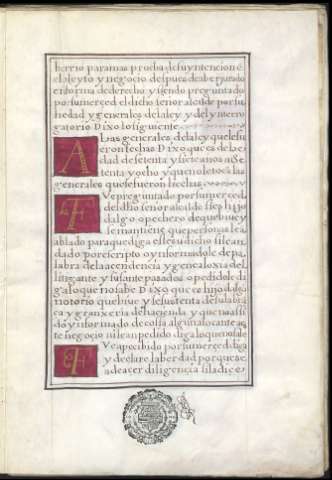 berrio para mas prueba de su yntencion e
el pleyto y negocio despues de aber jurado
en forma de derecho y siendo preguntado
por su merced el dicho señor alcalde por su
hedad y generales de la ley y del ynterro
gatorio Dixo lo siguiente
A las generales de la ley que le fu
eron fechas Dixo que es de he
dad de setenta y siete años a Se
tenta y ocho y que no le toca las
generales que le fueron hechas
F ve preguntado por su merced
del dho señor alcalde si es hijo
dalgo o pechero de que bive y
se mantiene que personas le a
ablado para que diga este su dicho si se an
dado por escripto o ynformadole de pa
labra de la acendencia y genealoxia del
litigante y su sante pasados o pedidole di
ga lo que no sabe Dixo que es hijo dalgo
notorio que bive y se sustenta de su labra
ca y granxeria de hacienda y que no a si
do ynformado de cossa alguna tocante a es
te negocio ni le an pedido diga lo que no sabe
F Ve apercibido por su merced diga
y declare la berdad porque se
a de acer diligencia si la dice